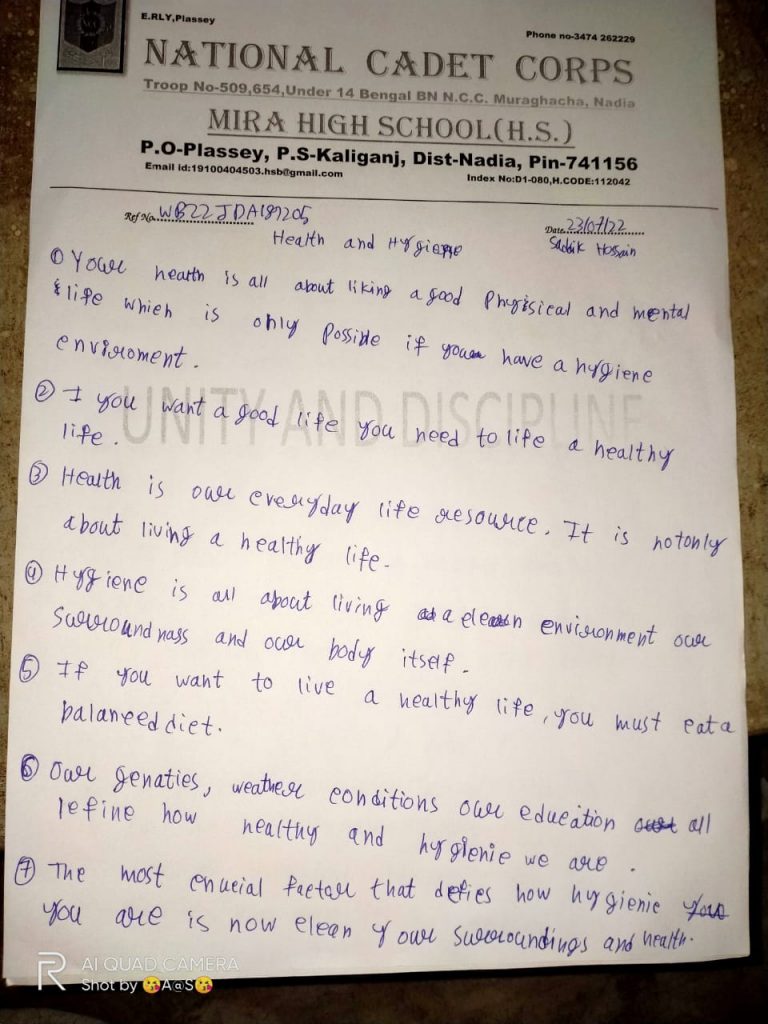 E.RLY,Plassey
Phone no-3474 262229
NATIONAL CADET CORPS
Troop No-509,654,Under 14 Bengal BN N.C.C. Muraghacha, Nadia
MIRA HIGH SCHOOL(H.S.)
P.O-Plassey, P.S-Kaliganj, Dist-Nadia, Pin-741156
Email id:19100404503.hsb@gmail.com Index No:D1-080,H.CODE:112042
Ref No. WB22JDA187205 Date 23/07/22
Health and Hygiene Sadik Hossain
① Your health is all about liking a good Physical and mental
life which is only possible if you have a hygiene
enviroment.
UNITY AND DISCIPLINE
② I you want a good life you need to life a healthy
life.
③ Health is our everyday life resource. It is notonly
about living a healthy life.
④ Hygiene is all about living a clean environment our
Surroundnass and our body itself.
⑤ If you want to live a healthy life, you must eat a
balanced diet.
⑥ Our genaties, weather conditions our education all
define how healthy and hygienie we are.
⑦ The most crucial factor that defies how hygienie
you are is how clean your surroundings and health.
AI QUAD CAMERA
Shot by 😘A@S😘